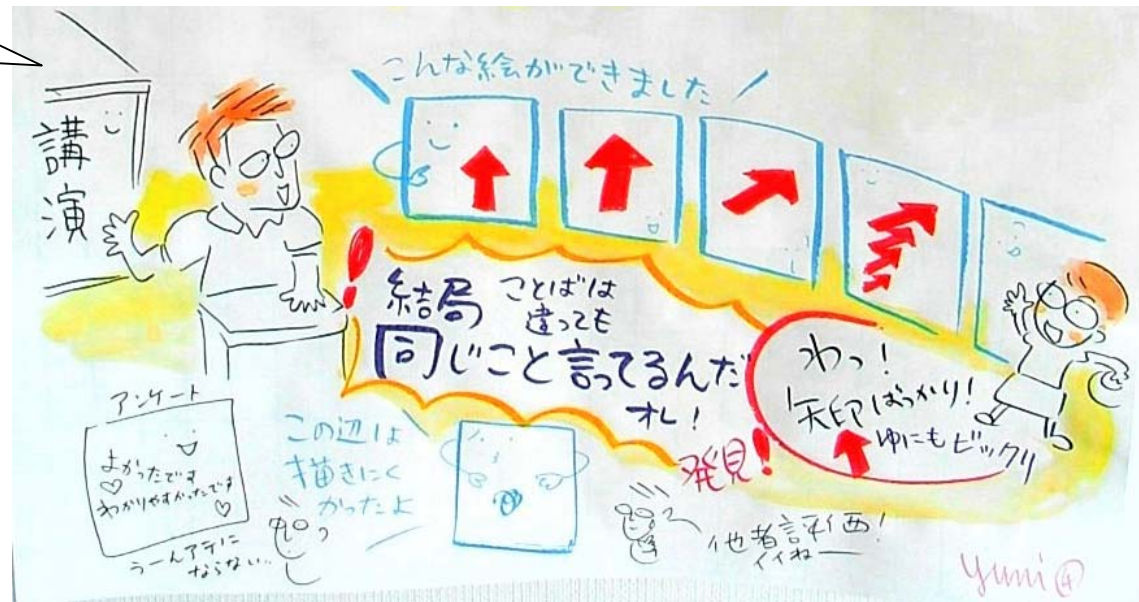 こんな絵ができました
講演
!
結局 ことばは
違っても
同じこと言ってるんだ
オレ!
わっ!
矢印ばっかり!
ゆにもビックリ
発見!
アンケート
よかったです
わかりやすかったです
うーんアテに
ならない..
この辺は
描きにく
かったよ
他者評価!
イイねー
yuni④